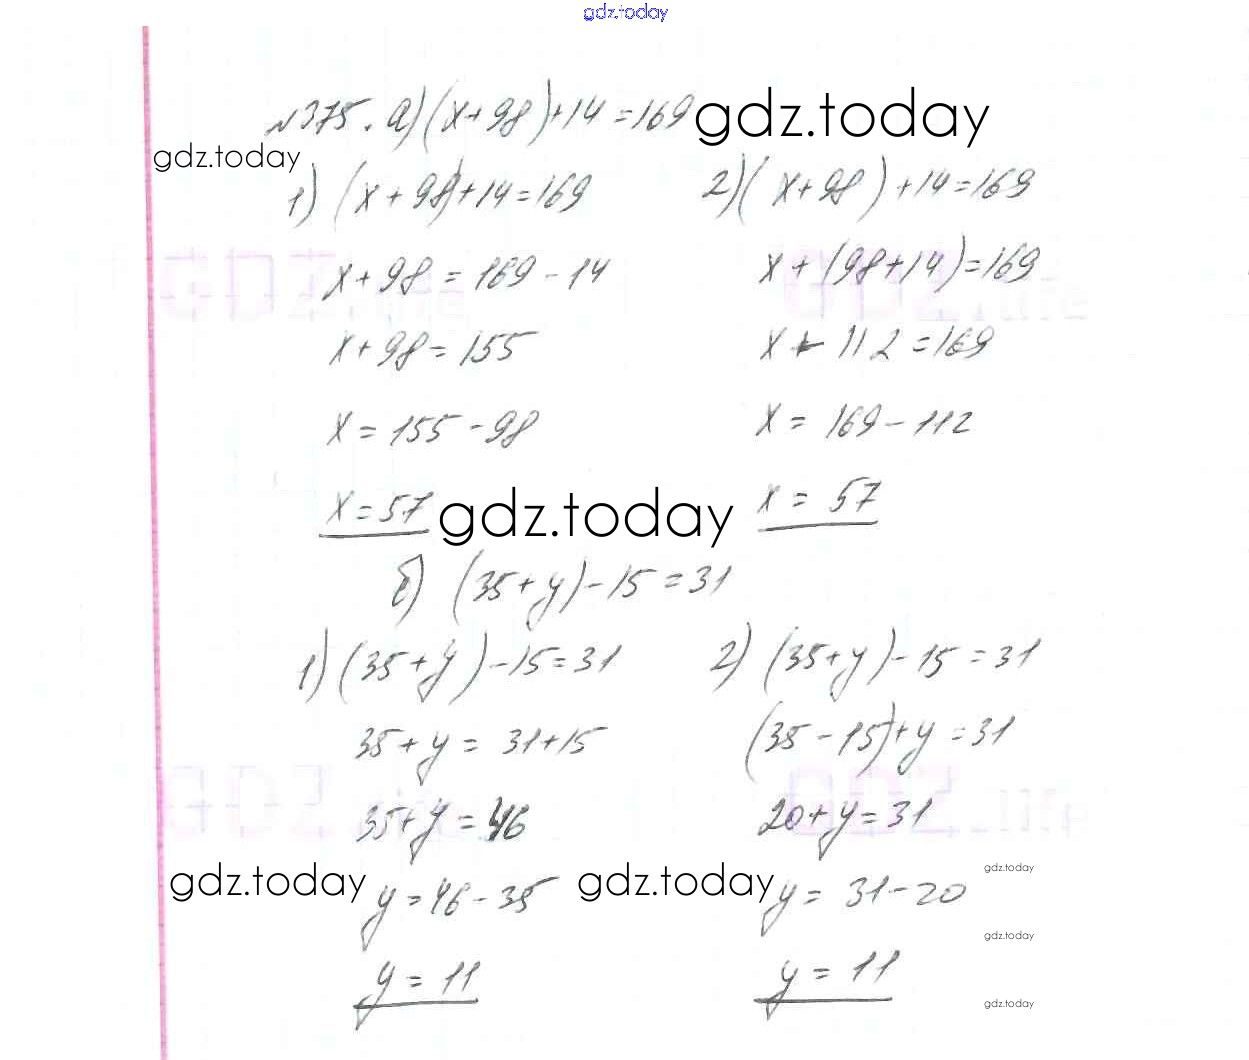 gdz.today
№375. а) (x+98)+14=169 gdz.today
gdz.today
1) (x+98)+14=169
x+98=169-14
x+98=155
x=155-98
x=57
2) (x+98)+14=169
x+(98+14)=169
x+112=169
x=169-112
x=57
gdz.today
б) (35+y)-15=31
1) (35+y)-15=31
35+y=31+15
35+y=46
y=46-35
y=11
2) (35+y)-15=31
(35-15)+y=31
20+y=31
y=31-20
y=11
gdz.today
gdz.today
gdz.today
gdz.today
gdz.today